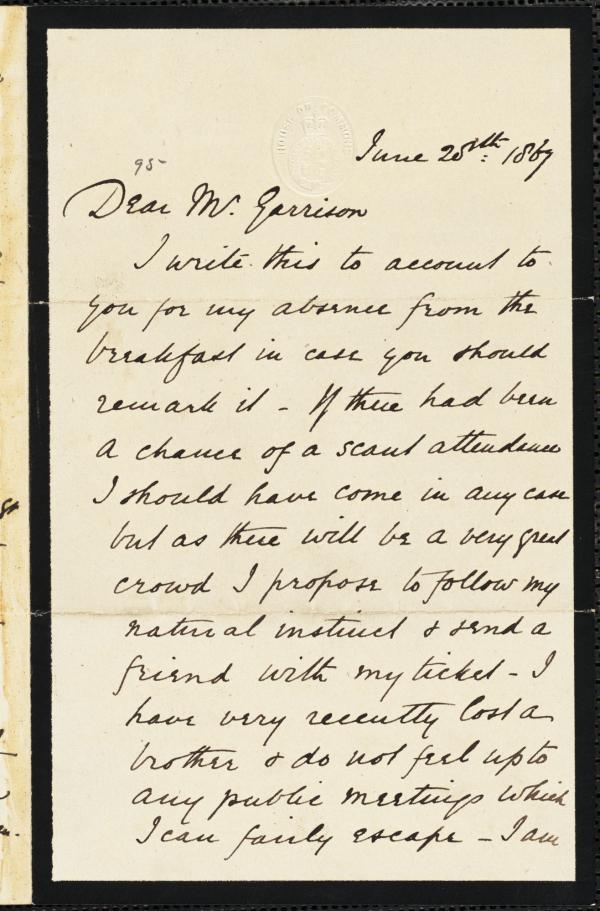 HOUSE OF COMMONS
June 28th: 1867
95-
Dear Mr. Garrison
I write this to account to
you for my absence from the
breakfast in case you should
remark it - If there had been
a chance of a scant attendance
I should have come in any case
but as there will be a very great
crowd I propose to follow my
natural instinct & send a
friend with my ticket - I
have very recently lost a
brother & do not feel up to
any public meetings which
I can fairly escape - I am